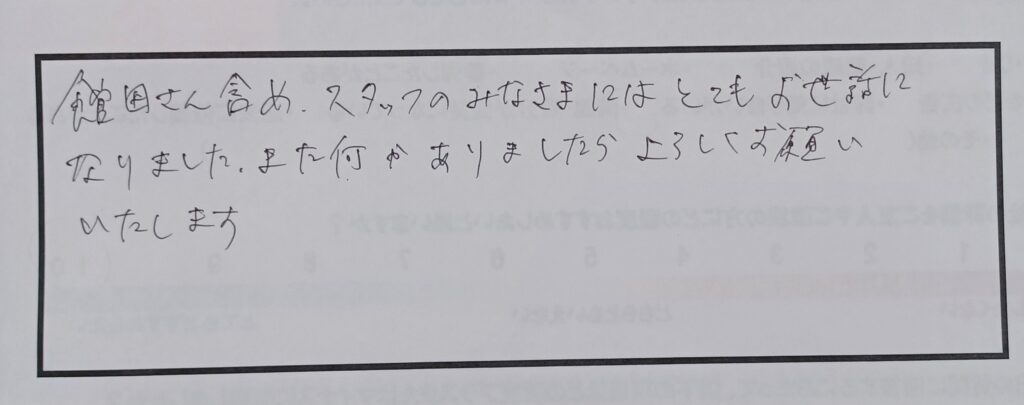 舘田さん含め、スタッフのみなさまにはとてもお世話に
なりました。また何かありましたらよろしくお願い
いたします